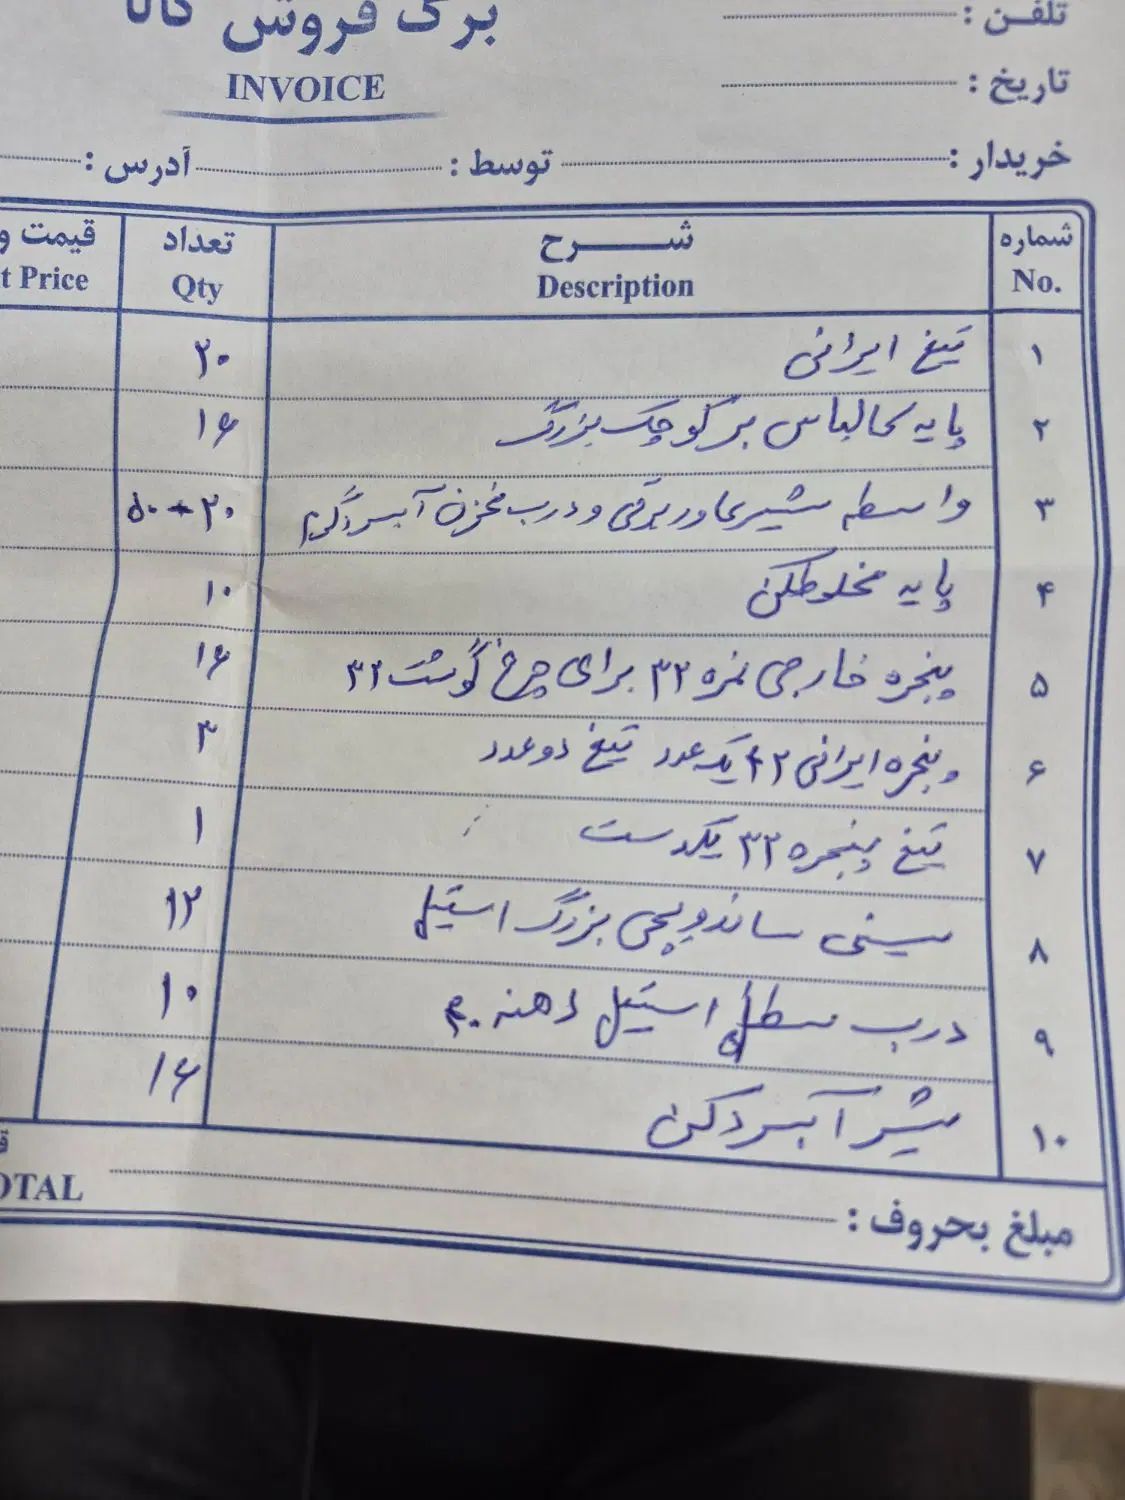 برگ فروش کالا
INVOICE
تلفن :
تاریخ :
خریدار : توسط : آدرس :
شماره شرح تعداد قیمت و
No. Description Qty t Price
۱ تیغ ایرانی ۲۰
۲ پایه کالباس بر کوچک بزرگ ۱۶
۳ واسطه شیر و درب مخزن آبسردکن ۲۰ + ۵۰
۴ پایه مخلوطکن ۱۰
۵ پنجره خارجی نمره ۳۲ برای چرخ گوشت ۳۲ ۱۶
۶ پنجره ایرانی ۴۲ یک عدد تیغ دو عدد ۳
۷ تیغ پنجره ۳۲ یکدست ۱
۸ سینی ساندویچی بزرگ استیل ۱۲
۹ درب سطل استیل دهنه ۴۰ ۱۰
۱۰ شیر آبسردکن ۱۶
OTAL
مبلغ بحروف :